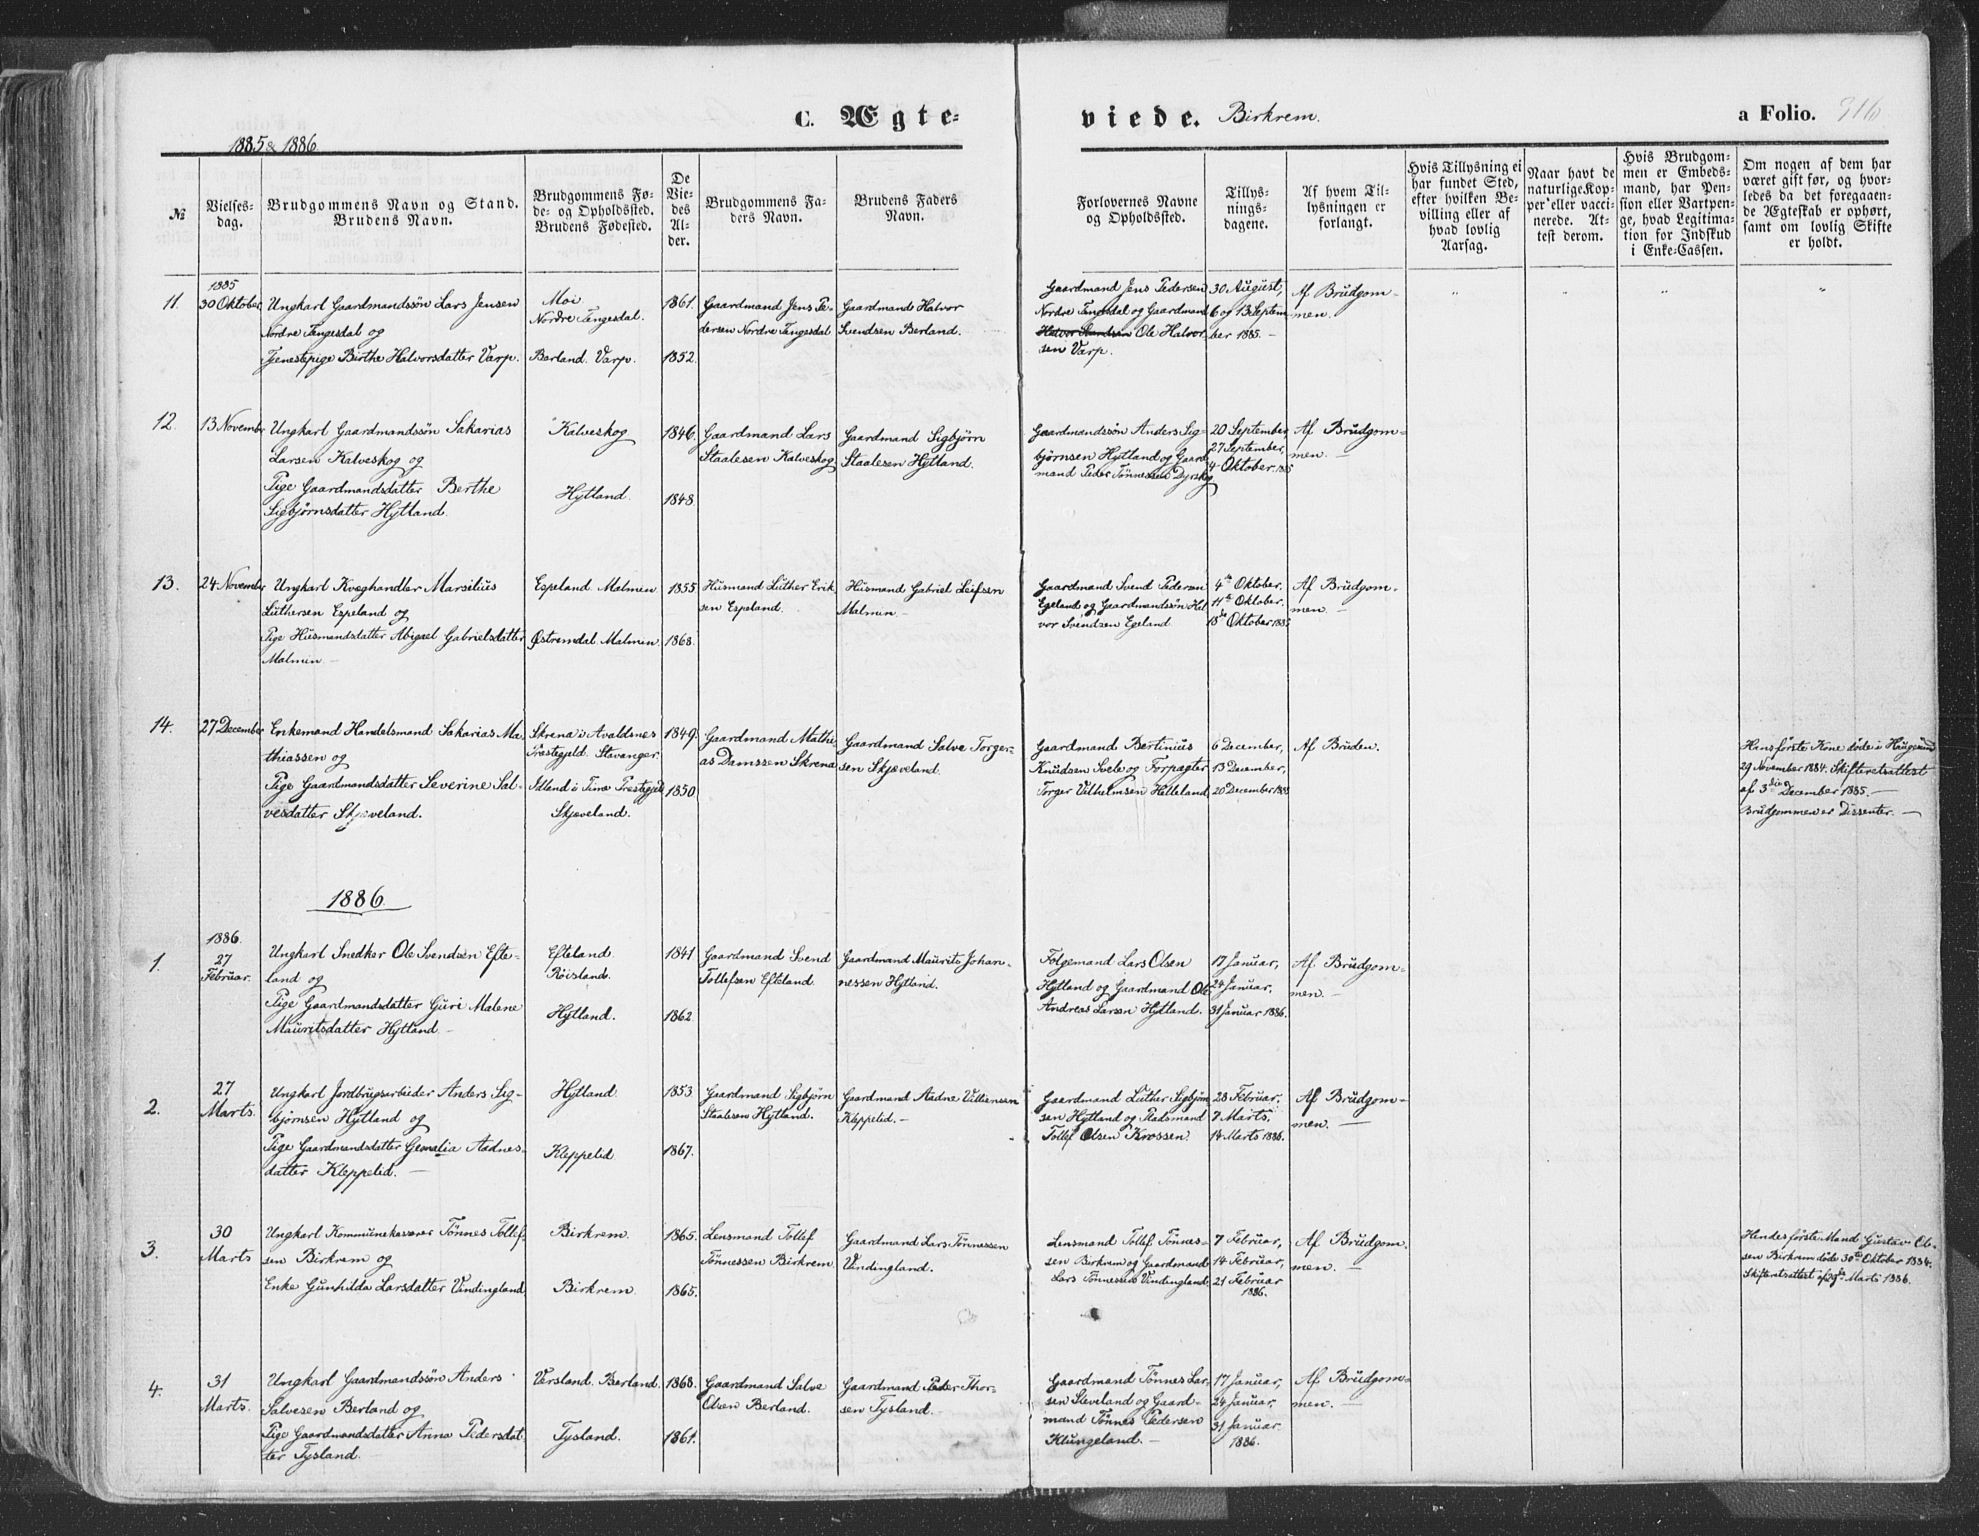 C. Ægte=
viede. Birkrem.
a Folio. 316
1885 & 1886
№
Vielses-
dag.
Brudgommens Navn og Stand.
Brudens Navn.
Brudgommens Fø-
de- og Opholdssted.
Brudens Fødested.
De
Vie-
des
Al-
der.
Brudgommens Fa-
ders Navn.
Brudens Faders
Navn.
Forlovernes Navne
og Opholdssted.
Tillys-
nings-
dagene.
Af hvem Til-
lysningen er
forlangt.
Hvis Tillysning ei
har fundet Sted,
efter hvilken Be-
villing eller af
hvad lovlig
Aarsag.
Naar havt de
naturlige Kop-
per eller vacci-
nerede. At-
test derom.
Hvis Brudgom-
men er Embeds-
mand, har Pen-
sion eller Vartpen-
ge, hvad Legitima-
tion for Indskud
i Enke-Cassen.
Om nogen af dem har
været gift før, og hvor-
ledes da det foregaaen-
de Ægteskab er ophørt,
samt om lovlig Skifte
er holdt.
11.
1885
30 Oktober
Ungkarl Gaardmandssøn Lars Jensen
Nordre Tengesdal og
Tjenestepige Birthe Halvorsdatter Varp.
Moi
Nordre Tengesdal.
Berland. Varp.
1861.
1852.
Gaardmand Jens Pe-
dersen Nordre Tengesdal
Gaardmand Halvor
Svendsen Berland.
Gaardmand Jens Pedersen
Nordre Tengesdal og Gaardmand
Halvor Svendsen Ole Halvor-
sen Varp.
30 August,
6 og 13 Septem-
ber 1885. -
Af Brudgom-
men.
12.
13 November
Ungkarl Gaardmandssøn Sakarias
Larsen Kalveskog og
Pige Gaardmandsdatter Berthe
Sigbjørnsdatter Hytland.
Kalveskog
Hytland.
1846.
1848.
Gaardmand Lars
Staalesen Kalveskog
Gaardmand Sigbjørn
Staalesen Hytland.
Gaardmandssøn Anders Sig-
bjørnsen Hytland og Gaard-
mand Peder Tønnessen Dyrskog
20 September,
27 September,
4 Oktober. 1885
Af Brudgom-
men. -
13.
24 November
Ungkarl Kvæghandler Marselius
Luthersen Espeland og
Pige Husmandsdatter Abigael Gabrielsdatter
Malmin. -
Espeland. Malmen.
Østremdal. Malmen.
1855
1868.
Husmand Luther Erik-
sen Espeland.
Husmand Gabriel Leifsen
Malmin. -
Gaardmand Svend Pedersen
Egeland og Gaardmandssøn Hal-
vor Svendsen Egeland
4de Oktober.
11te Oktober.
18de Oktober 1885
Af Brudgom-
men. -
14.
27 December
Enkemand Handelsmand Sakarias Ma-
thiassen og
Pige Gaardmandsdatter Severine Sal-
vesdatter Skjæveland.
Skrena i Avaldsnes
Præstegjeld. Stavanger.
i Time Præstegjeld
Skjæveland.
1849.
1850
Gaardmand Mathi-
as Skrena
Gaardmand Salve Torger-
sen Skjæveland.
Gaardmand Bertinius
Knudsen Svele og Forpagter
Torger Vilhelmsen Helleland.
6 December,
13 December,
20 December 1885
Af Bruden.
Hans første Kone døde i Haugesund
29 November 1884. Skifteretsattest
af 3die December 1885. -
Brudgommen er Dissenter. -
1886.
1.
1886.
27
Februar.
Ungkarl Snedker Ole Svendsen Efte-
land og
Pige Gaardmandsdatter Guri Malene
Mauritsdatter Hytland -
Efteland.
Røisland.
Hytland.
1841
1862.
Gaardmand Svend
Tollefsen Efteland.
Gaardmand Maurits Johan-
nessen Hytland.
Følgemand Lars Olsen
Hytland og Gaardmand Ole
Andreas Larsen Hytland.
17 Januar,
24 Januar.
31 Januar 1886.
Af Brudgom-
men. -
2.
27
Marts.
Ungkarl Jordbrugsarbeider Anders Sig-
bjørnsen Hytland og
Pige Gaardmandsdatter Aadnes-
datter Kleppelid. -
Hytland.
Kleppelid
1853.
1867.
Gaardmand Sigbjørn
Staalesen Hytland.
Gaardmand Aadne Villiensen
Kleppelid. -
Gaardmand Luther Sigbjørn-
sen Hytland og Pladsmand
Tollef Olsen Krossen.
28 Februar,
7 Marts,
14 Marts 1886.
Af Brudgom-
men. -
3.
30
Marts
Ungkarl Kommunekasserer Tønnes Tollef-
sen Birkrem og
Enke Gunhilda Larsdatter Vindingland
Birkrem.
Birkrem.
1865.
1865.
Lensmand Tollef
Tønnessen Birkrem.
Gaardmand Lars Tønnessen
Vindingland.
Lensmand Tollef Tønnes-
sen Birkrem og Gaardmand
Lars Tønnessen Vindingland.
7 Februar,
14 Februar,
21 Februar
1886.
Af Brudgom-
men. -
Hendes første Mand Gustav Ol-
sen Birkrem døde 30te Oktober 1884.
Skifteretsattest af Marts 1886.
4.
31
Marts.
Ungkarl Gaardmandssøn Anders
Salvesen Berland og
Pige Gaardmandsdatter Anna Pedersdat-
ter Tysland.
Versland. Berland.
Tysland.
1868.
1861.
Gaardmand Salve
Olsen Berland.
Gaardmand Peder Thor-
sen Tysland.
Gaardmand Tønnes Lar-
sen Sleveland og Gaard-
mand Tønnes Pedersen
Klungeland. -
17 Januar,
24 Januar,
31 Januar
1886.
Af Brudgom-
men. -